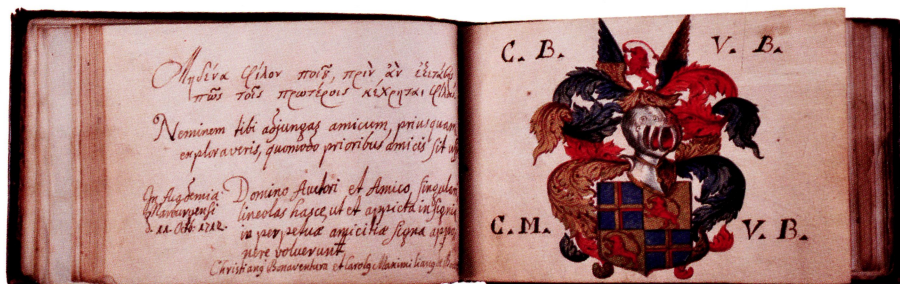 Μηδένα φίλον ποιοῦ, πρὶν ἂν ἐξετάσῃς
πῶς τοῖς προτέροις κέχρηται φίλοις
Neminem tibi adjungas amicum, priusquam
exploraveris, quomodo prioribus amicis sit
In Academia
Marburgensi
d. 11. Oct. 1712.
Domino Autori et Amico, singularem
lineolas hasce, ut et appicta insignia
in perpetuæ amicitiæ signa appo-
nere voluerunt
Christiang Bonaventura et Carolg Maximiliang
C. B. V. B.
C. M. V. B.